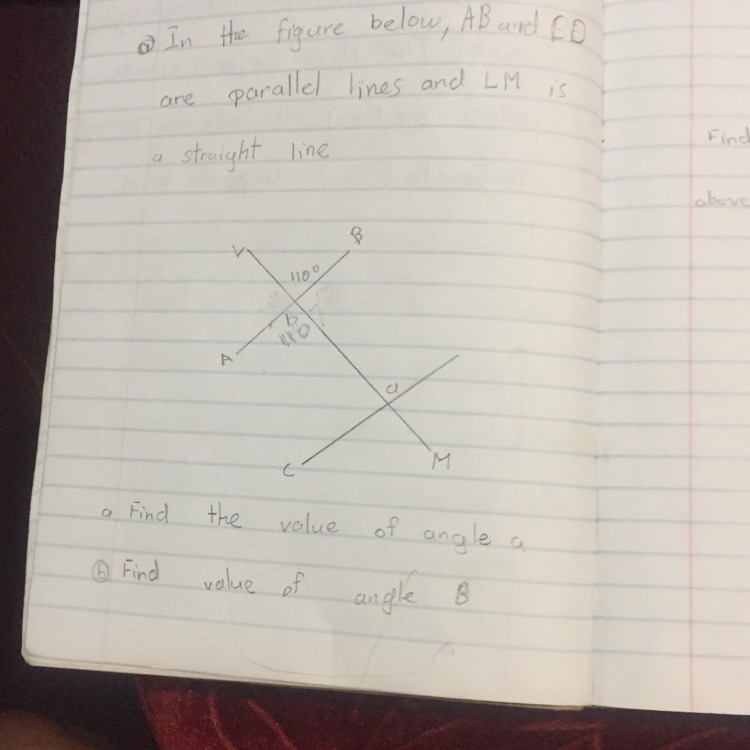 a In the figure below, AB and CD
are parallel lines and LM is
a straight line
Find
above
V
B
110°
b
A
a
C
M
a Find the value of angle a
b Find value of angle B